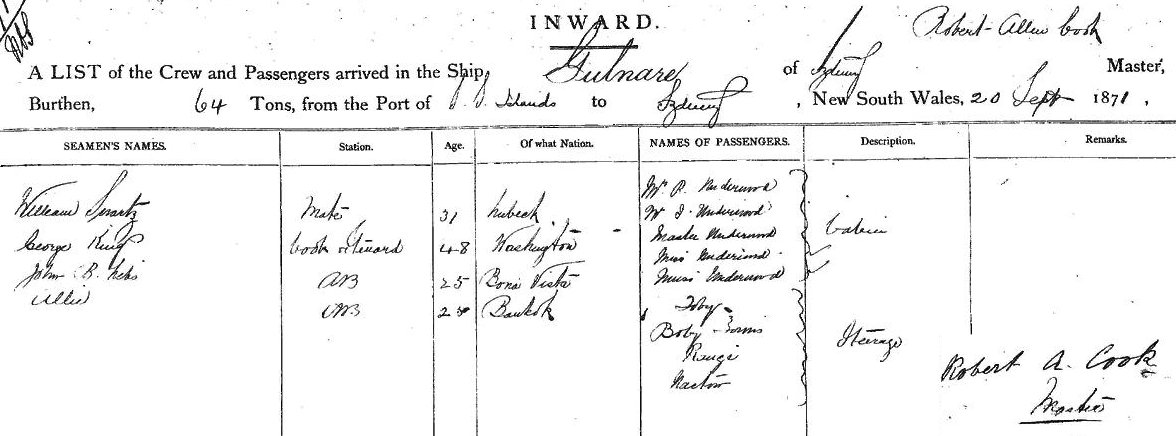 INWARD.
Robert Allen Cook
A LIST of the Crew and Passengers arrived in the Ship Gulnare of Sydney Master,
Burthen, 64 Tons, from the Port of Islands to Sydney, New South Wales, 20 Sept 1871,
SEAMEN'S NAMES. Station. Age. Of what Nation. NAMES OF PASSENGERS. Description. Remarks.
Mr. Underwood
William Swartz Mate 31 Lubeck Underwood
George King Cook & Steward 48 Washington Master Underwood Cabin
Miss Underwood
John B. AB 25 Bona Vista Miss Underwood
Allie AB Bankok Toby
Boby
Steerage
Robert A. Cook
Master